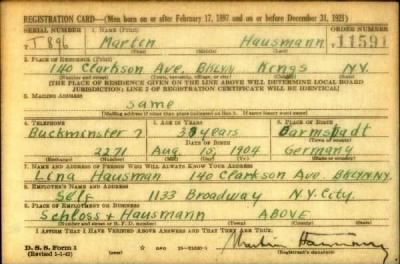 REGISTRATION CARD—(Men born on or after February 17, 1897 and on or before December 31, 1921)
SERIAL NUMBER 1. NAME (Print) ORDER NUMBER
T 896 Martin Hausmann 11591
(First) (Middle) (Last)
2. PLACE OF RESIDENCE (Print)
140 Clarkson Ave. BKLYN Kings N.Y.
(Number and street) (Town, township, village, or city) (County) (State)
[THE PLACE OF RESIDENCE GIVEN ON THE LINE ABOVE WILL DETERMINE LOCAL BOARD
JURISDICTION; LINE 2 OF REGISTRATION CERTIFICATE WILL BE IDENTICAL]
3. MAILING ADDRESS
same
[Mailing address if other than place indicated on line 2. If same insert word same]
4. TELEPHONE 5. AGE IN YEARS 6. PLACE OF BIRTH
Buckminster 7 years Darmstadt
DATE OF BIRTH (Town or county)
2271 Aug. 15, 1904 Germany
(Exchange) (Number) (Mo.) (Day) (Yr.) (State or country)
7. NAME AND ADDRESS OF PERSON WHO WILL ALWAYS KNOW YOUR ADDRESS
Lina Hausman 140 Clarkson Ave.
8. EMPLOYER'S NAME AND ADDRESS
Self 1133 Broadway N.Y.City.
9. PLACE OF EMPLOYMENT OR BUSINESS
Schloss + Hausmann ABOVE
(Number and street or R. F. D. number) (Town) (County) (State)
I AFFIRM THAT I HAVE VERIFIED ABOVE ANSWERS AND THAT THEY ARE TRUE.
D. S. S. Form 1
(Revised 1-1-42) (Registrant's signature)
Martin Hausmann